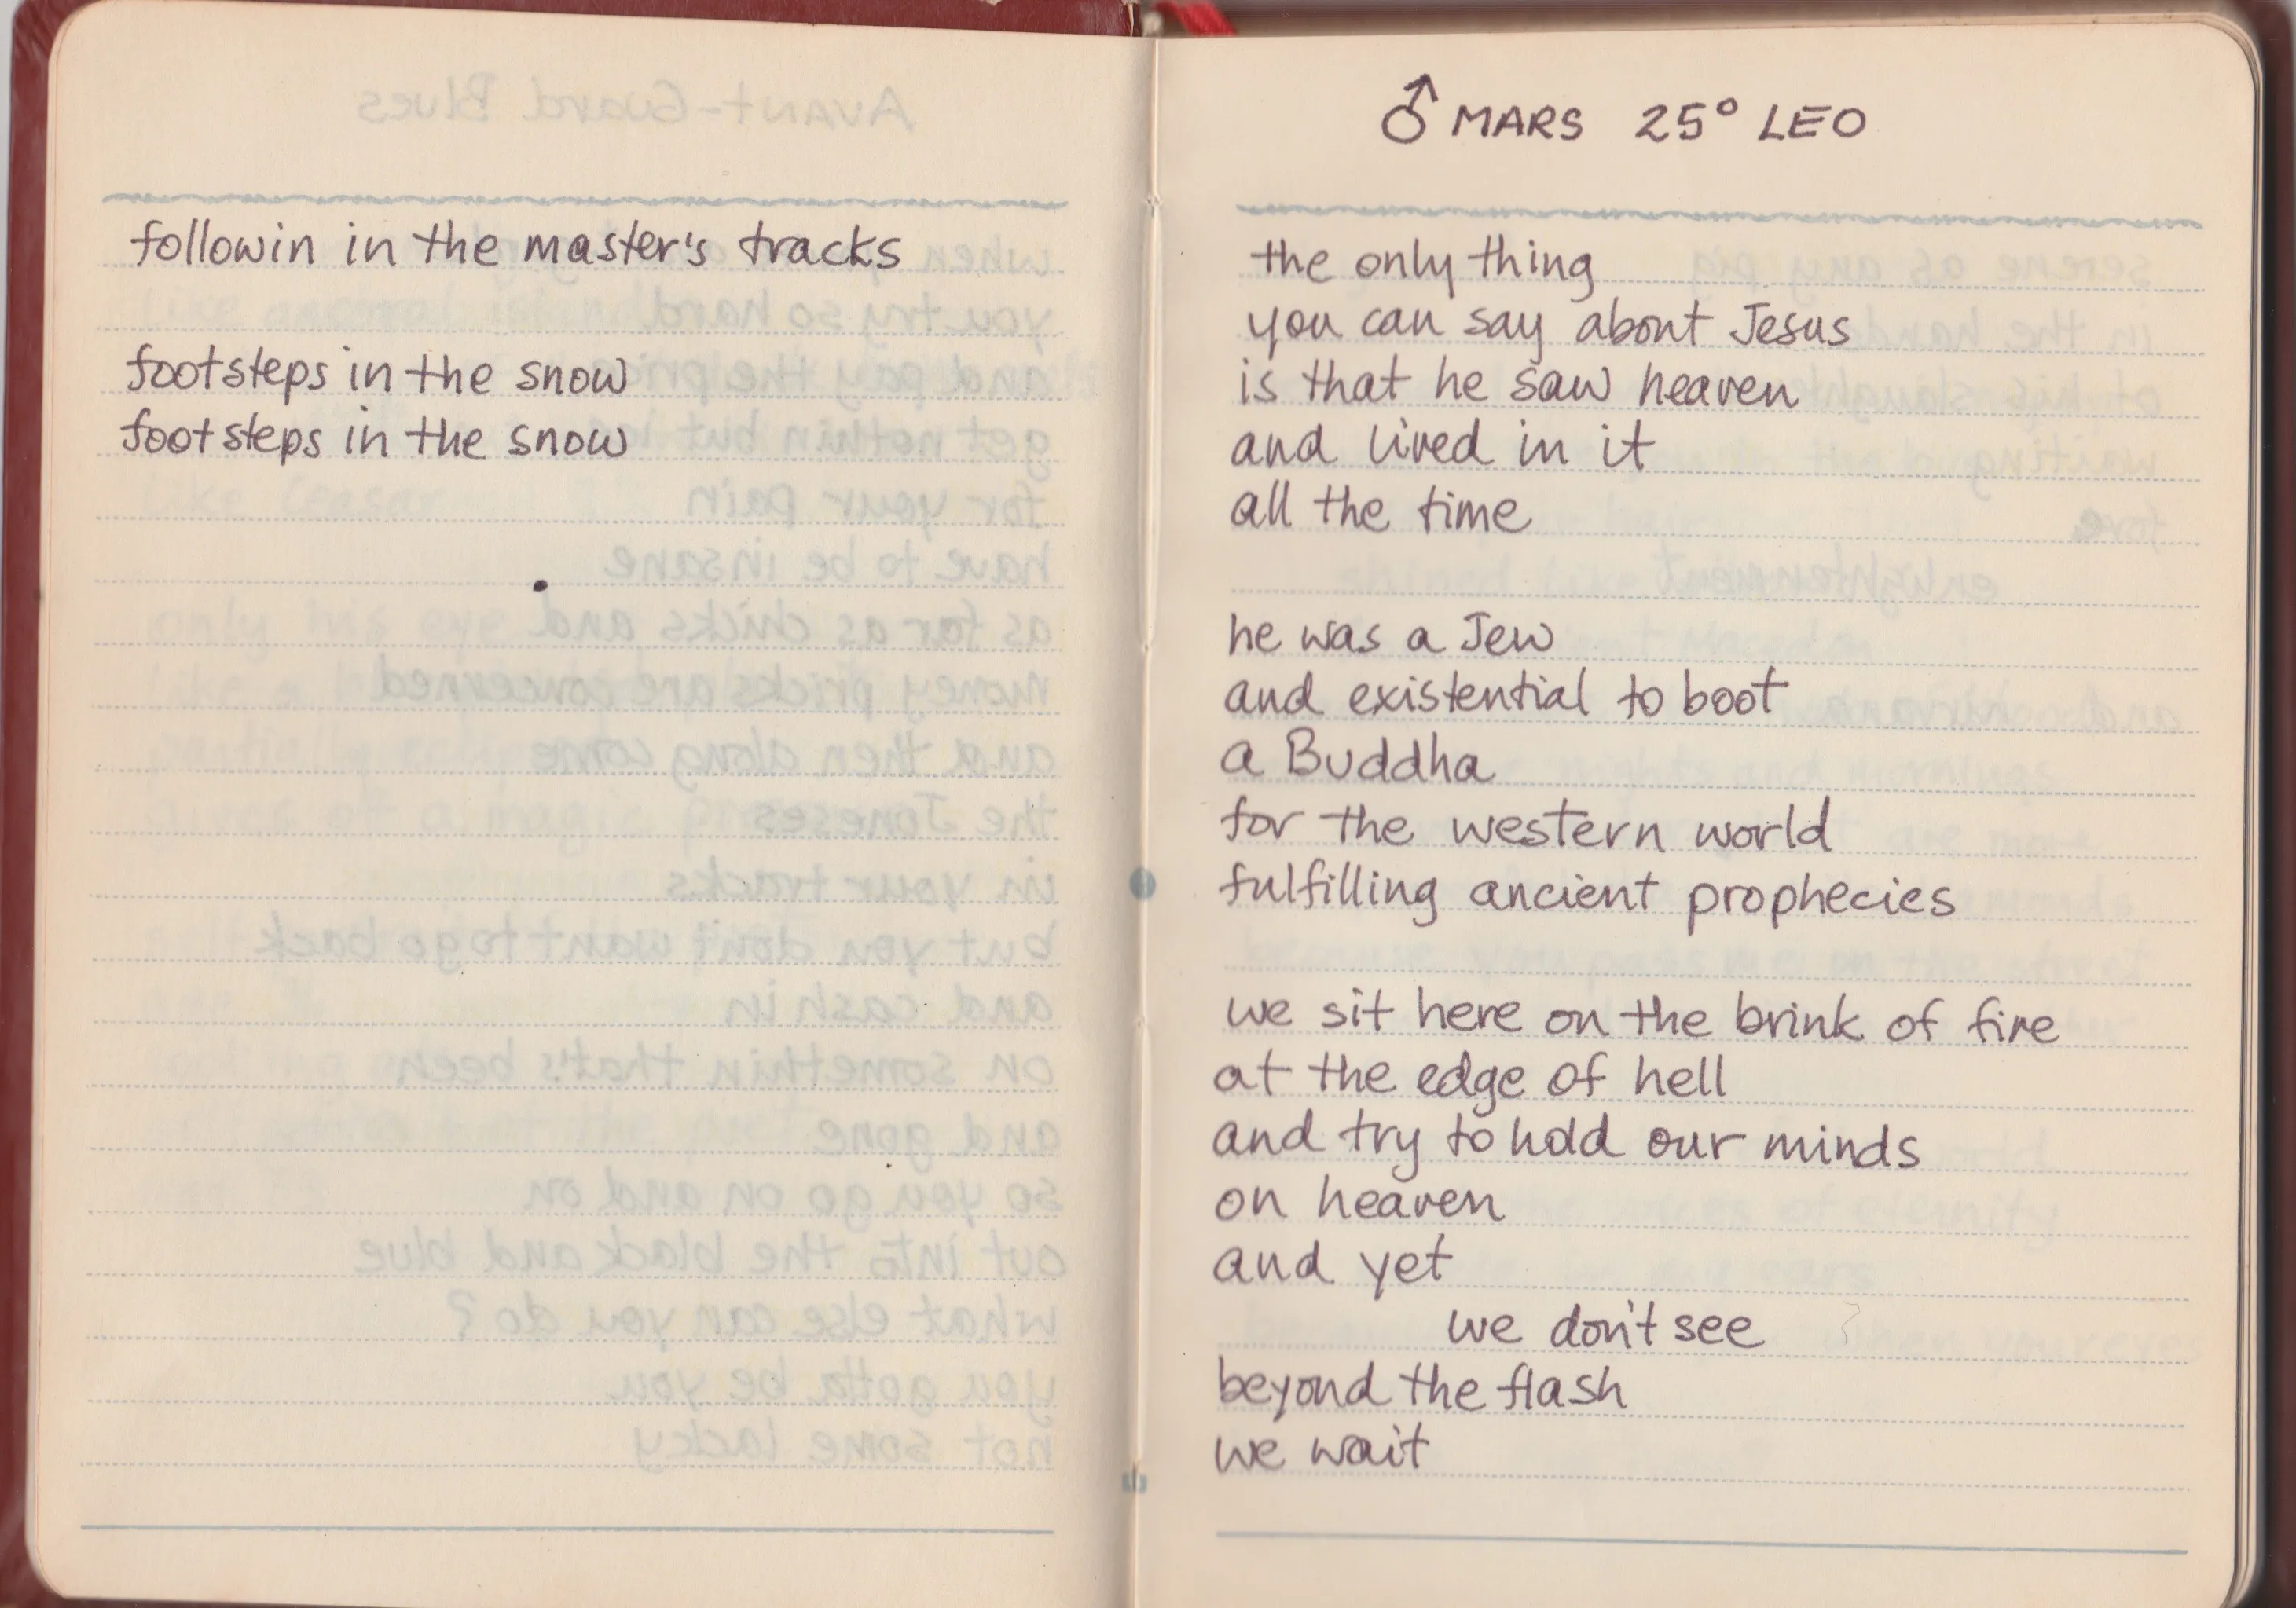 followin in the master's tracks
footsteps in the snow
footsteps in the snow
♂ MARS 25° LEO
the only thing
you can say about Jesus
is that he saw heaven
and lived in it
all the time
he was a Jew
and existential to boot
a Buddha
for the western world
fulfilling ancient prophecies
we sit here on the brink of fire
at the edge of hell
and try to hold our minds
on heaven
and yet
we don't see
beyond the flash
we wait